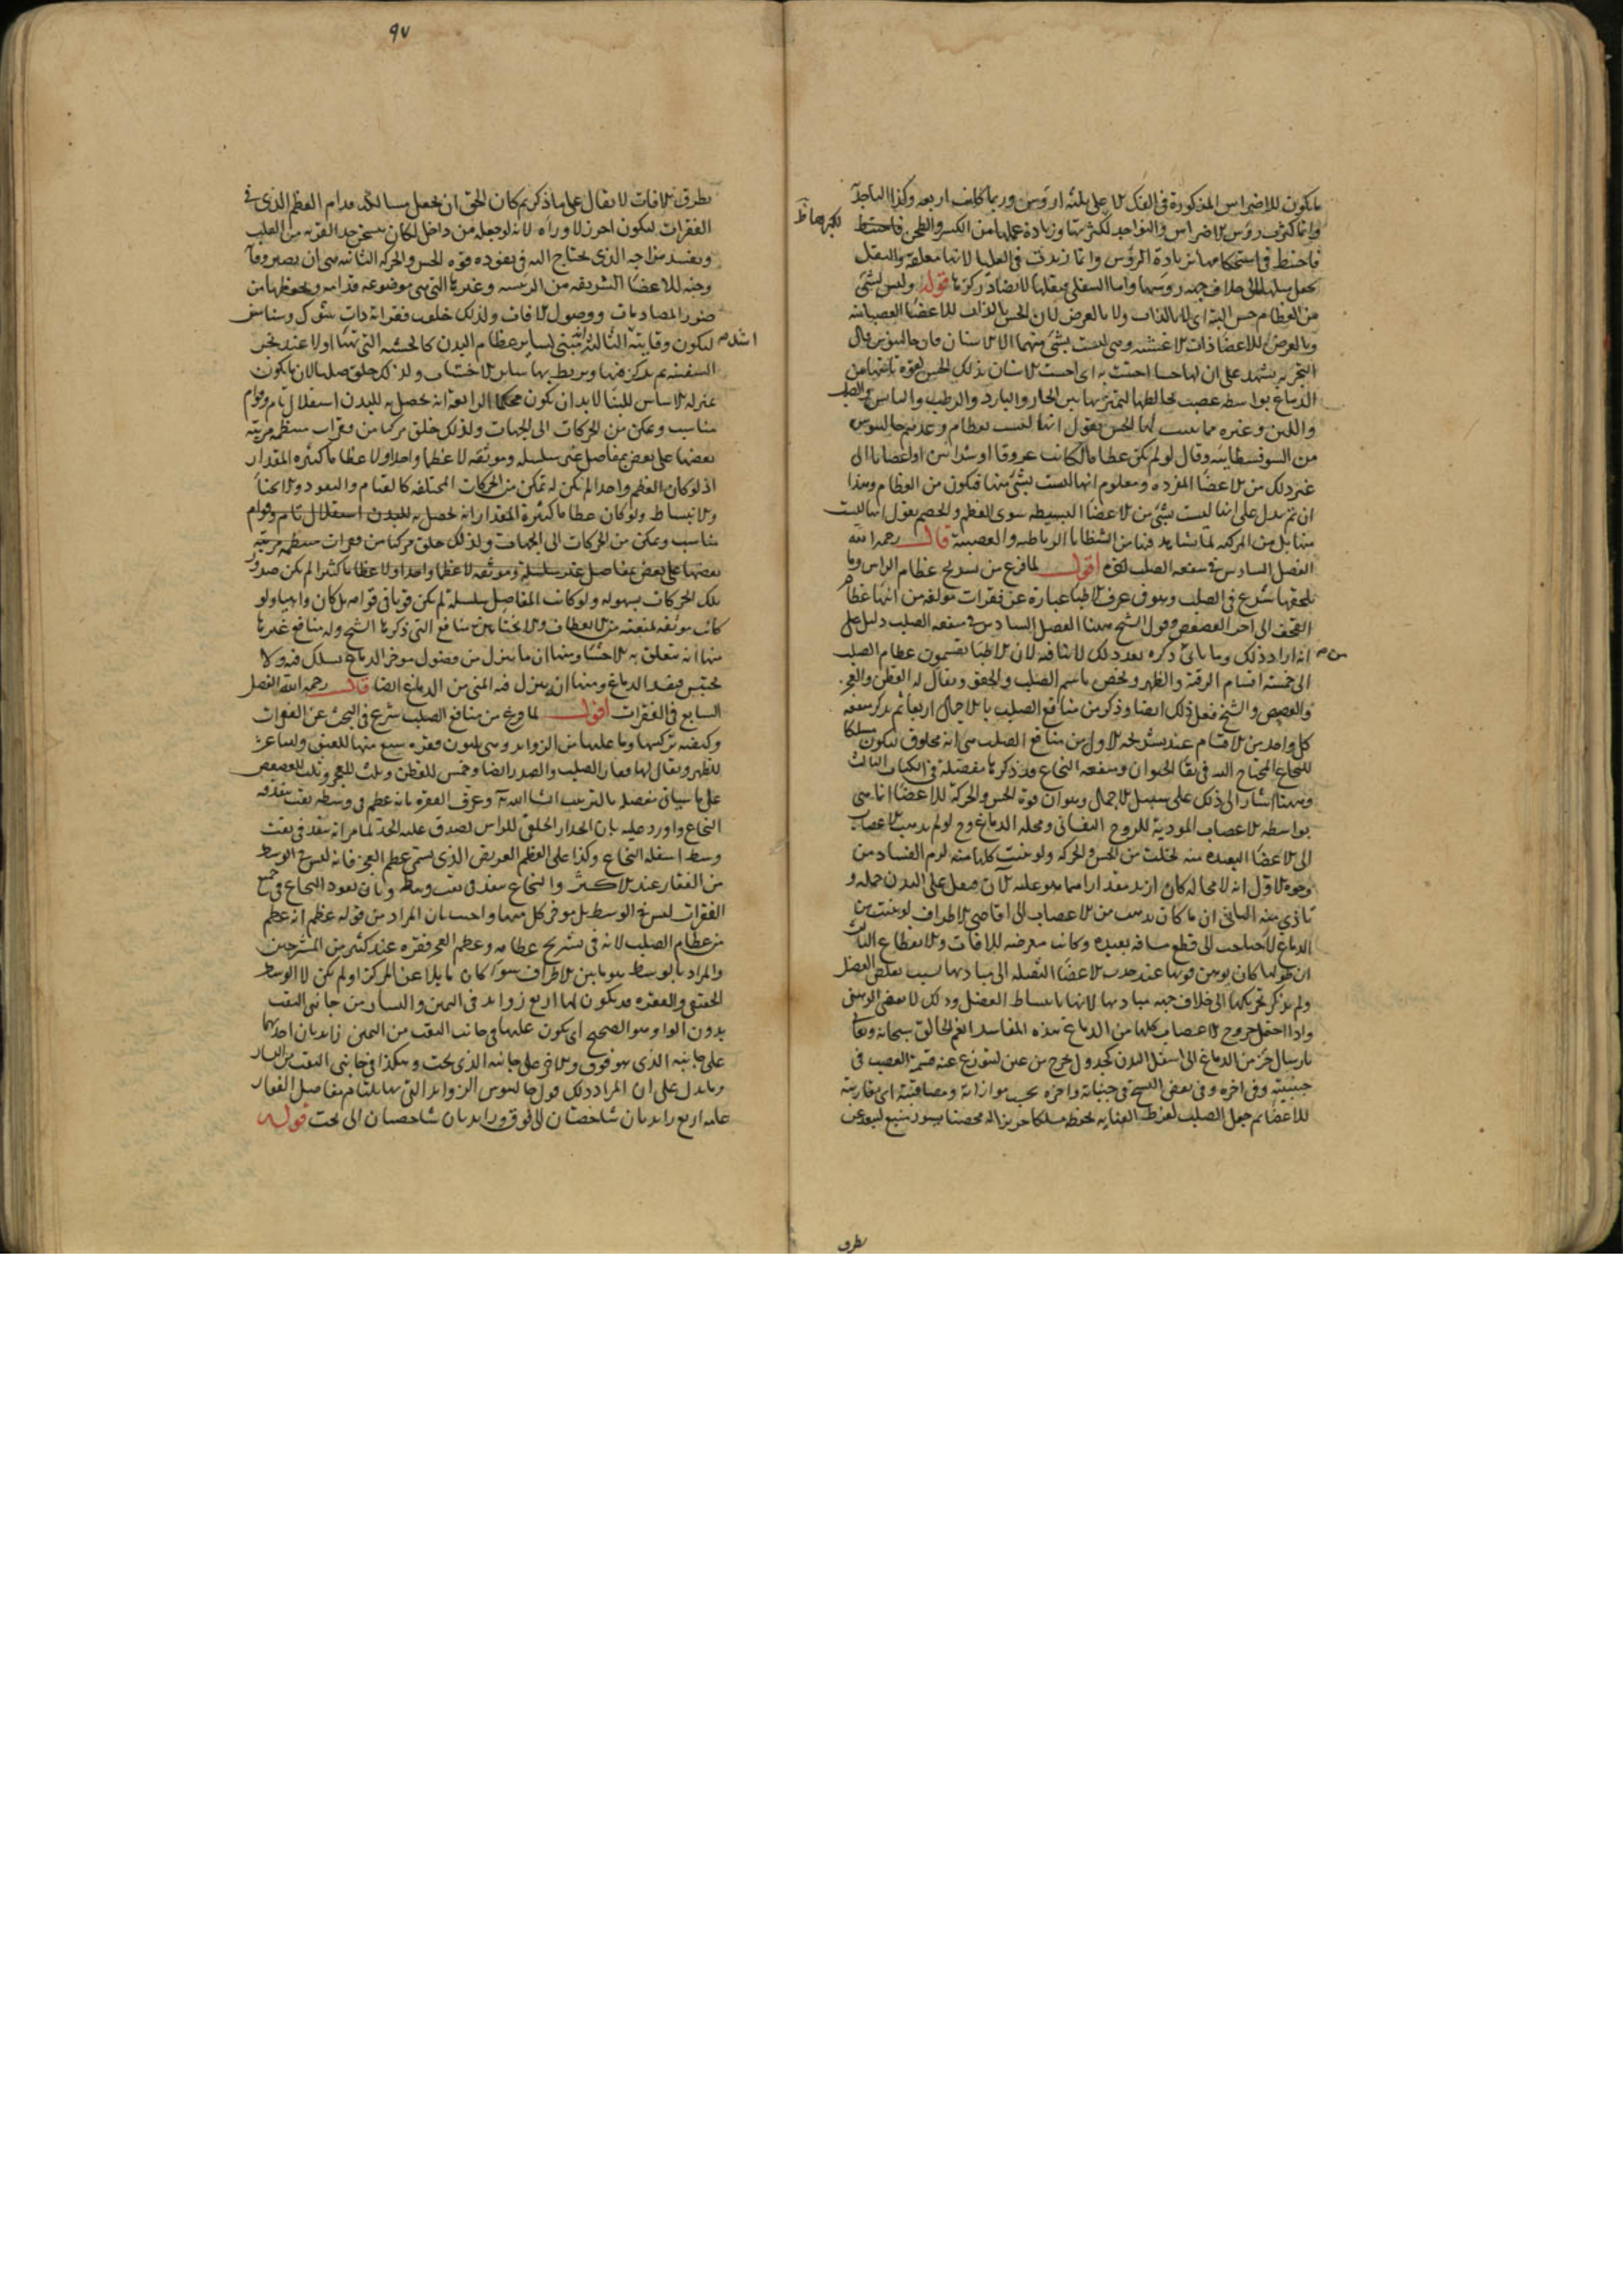 ما يكون للاضراس المذكورة فى الفك الاعلى ثلثه اروس وربما كانت اربعه وكذا الناجذ
وانما كثرت روس الاضراس والنواجد لكبرها وزيادة عملها من الكسر والطحن فاحتيط
لكبرهما
فاحتيط فى استحكامها بزيادة الروس وانما زيدت فى العليا لانها معلقة والثقل
يجعل ميلها الى خلاف جهة روسها واما السفلى فثقلها لا يضاد ركزها قوله وليس لشئ
من العظام حس البتة اى لا بالذات ولا بالعرض لان الحس بالذات للاعضا العصبانيه
وبالعرض للاعضا ذات الاغشيه وهى ليست بشئ منهما الا الاسنان فان جالينوس قال
التجربه يشهد على ان لها حسا اعينت به اى احست الاسنان بذلك الحس لقوة تاتيها من
الدماغ بواسطه عصب يخالطها لتميز بها بين الحار والبارد والرطب واليابس والصلب
واللين وغيره مما يثبت لها الحس يقول انها ليست بعظام وعدهم جالينوس
من السوفسطاييه وقال لو لم تكن عظاما لكانت عروقا او شرايين او اعصابا الى
غير ذلك من الاعضا المفرده ومعلوم انها ليست بشئ منها فيكون من العظام وهذا
ان تم يدل على انها ليست بشئ من الاعضا البسيطه سوى العظم والخصم يقول انها ليست
منها بل من المركبه لما يشاهد فيها من الشظايا الرباطيه والعصبية قال رحمه الله
الفصل السادس فى منفعه الصلب اقول لما فرغ من تشريح عظام الراس وما
يلحقها شرع فى الصلب وهو فى عرف الاطبا عبارة عن فقرات مولفه من انها عظام
القحف الى اخر العصعص وقول الشيخ ههنا الفصل السادس فى منفعه الصلب دليل على
انه اراد ذلك وما ياتى ذكره بعد ذلك لا ينافيه لان الاطبا يقسمون عظام الصلب
الى خمسة اقسام الرقبة والظهر ويخص باسم الصلب والحقو ويقال له القطن والعجز
والعصعص والشيخ فعل ذلك ايضا وذكر من منافع الصلب بالاجمال اربعا ثم يذكر منفعه
كل واحد من الاقسام عند تشريحه الاول من منافع الصلب هى انه مخلوق ليكون مسلكا
للنخاع المحتاج اليه فى بقا الحيوان ومنفعه النخاع قد ذكرها مفصلة فى الكتاب الثالث
وههنا اشار الى ذلك على سبيل الاجمال وهو ان قوة الحس والحركة للاعضا انما هى
بواسطه الاعصاب المودية للروح النفسانى ومحله الدماغ وح لو لم يذهب الاعصاب
الى الاعضا البعيده منه لخلت من الحس والحركه ولو نبتت كلها منه لزم الفساد من
وجوه الاول انه لا محاله كان ازيد مقدارا مما هو عليه الان فيثقل على البدن حمله و
تاذى منه الثانى ان ما كان يذهب من الاعصاب الى اقاصى الاطراف لو نبتت من
الدماغ لاحتاجت الى قطع مسافه بعيده وكانت معرضه للافات والانقطاع الثالث
ان طولها كان يوهن قوتها عند جذب الاعضا الثقيله الى مباديها بسبب تقلص العضل
ولم يذكر تحريكها الى خلاف جهة مباديها لانها بانبساط العضل وذلك لا يقتضى الوهن
واذا احتمل خروج الاعصاب كلها من الدماغ هذه المفاسد انعم الخالق سبحانه وتعا
بارسال جزء من الدماغ الى اسفل البدن كجدول خرج من عين ليتوزع عنه قسمة العصب فى
جنبتيه وفى اخره وفى بعض النسخ فى جنباته واخره بحسب موازاته ومصاقبته اى مقاربته
للاعضا ثم جعل الصلب لفرط العنايه بحفظه مسلكا حريزا له محصنا بسور منيع لبعد عن
تطرق
٩٧
تطرق الافات لا يقال على ما ذكرتم كان الحق ان يجعل مسالكه قدام العظم الذى فى
الفقرات ليكون احرز لا وراه لانه لو جعله من داخل لكان يسخن جدا لقربه من القلب
ويفسد مزاجه الذى يحتاج اليه فى نفوذه قوه الحس والحركه الثانيه هى ان يصير وقآ
وجنه للاعضا الشريفه من الرئيسه وغيرها التى هى موضوعه قدامه ويحفظها من
ضرر المصادمات ووصول الافات ولذلك خلقت فقراته ذات شوك وسناسن
اشد
ليكون وقايته الثالثة ليبتنى لساير عظام البدن كالخشبه التى تهيا اولا عند نجر
السفينه ثم يركز فيها ويربط بها ساير الاخشاب ولذلك خلق صلبا لان ما يكون
بمنزله الاساس للبنا لا بد ان يكون محكما الرابعة انه حصل به للبدن استقلال تام وقوام
مناسب وتمكن من الحركات الى الجهات ولذلك خلق مركبا من فقرات منتظمه مرتبه
بعضها على بعض بمفاصل غير سلسله وموثقه لا عظما واحدا ولا عظاما كثيره المقدار
اذ لو كان العظم واحدا لم يكن له تمكن من الحركات المختلفه كالقيام والقعود والانحنا
والانبساط ولو كان عظاما كثيرة المقدار انه حصل به للبدن استقلال تام وقوام
مناسب وتمكن من الحركات الى الجهات ولذلك خلق مركبا من فقرات منتظمه مرتبه
بعضها على بعض بمفاصل غير سلسله وموثقه لا عظما واحدا ولا عظاما كثيرا لم يكن صدور
تلك الحركات بسهوله ولو كانت المفاصل سلسله لم يكن قويا فى قوامه بل كان واهيا ولو
كانت موثقه لمنعته من الانعطاف والانحنا هذه منافع التى ذكرها الشيخ وله منافع غيرها
منها انه يتعلق به الاحشا ومنها ان ما ينزل من فضول موخر الدماغ يسلك فيه ولا
يحتبس فيفسد الدماغ ومنها ان ينزل فيه المنى من الدماغ ايضا قال رحمه الله الفصل
السابع فى الفقرات اقول لما فرغ من منافع الصلب شرع فى البحث عن الفقرات
وكيفيه تركيبها وما عليها من الزوايد وهى ثلثون فقره سبع منها للعنق واثنا عشر
للظهر ويقال لها فقار الصلب والصدر ايضا وخمس للقطن وثلث للعجز وثلث للعصعص
على ما سياتى مفصلا بالترتيب ان شا الله تعا وعرف الفقره بانه عظم فى وسطه ثقب ينفذ فيه
النخاع واورد عليه بان الجدار الخلفى للراس يصدق عليه الحد لما مر انه ينفذ فى ثقب
وسط اسفله النخاع وكذا على العظم العريض الذى يسمى عظم العجز فانه ليس فى الوسط
من الفقار عند الاكثر والنخاع ينفذ فى ثقب وسطه وبان نفوذ النخاع فى جميع
الفقرات ليس فى الوسط بل موخر كل منها واجيب بان المراد من قوله عظم انه عظم
من عظام الصلب لانه فى تشريح عظامه وعظم العجز فقره عند كثير من المشرحين
والمراد بالوسط هو ما بين الاطراف سوآ كان مايلا عن المركز او لم يكن لا الوسط
الحقيقى والفقره قد يكون لها اربع زوايد فى اليمين واليسار من جانبى الثقب
بدون الواو وهو الصحيح اى يكون عليها فى جانب الثقب من اليمين زايدتان احديهما
على جانبه الذى هو فوق والاخر على جانبه الذى تحت وهكذا فى جانبى الثقب من اليسار
وما يدل على ان المراد ذلك قول جالينوس الزوايد التى بها يلتئام مفاصل الفقار
عامه اربع زايدتان شاخصتان الى فوق وزايدتان شاخصتان الى تحت قوله